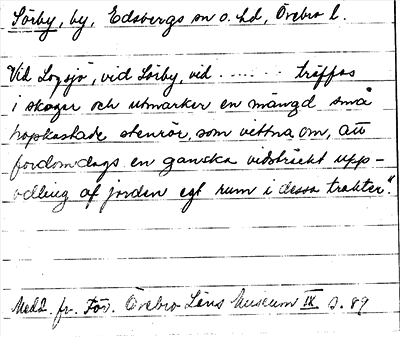 Sörby, by, Edsbergs sn o. hd, Örebro l.
Vid Logsjö, vid Sörby, vid ..... träffas
i skogar och utmarker en mängd små
hopkastade stenrör, som vittna om, att
fordomdags en ganska vidsträckt upp-
odling af jorden egt rum i dessa trakter."
Medd. fr. För. Örebro Läns Museum IX s. 89